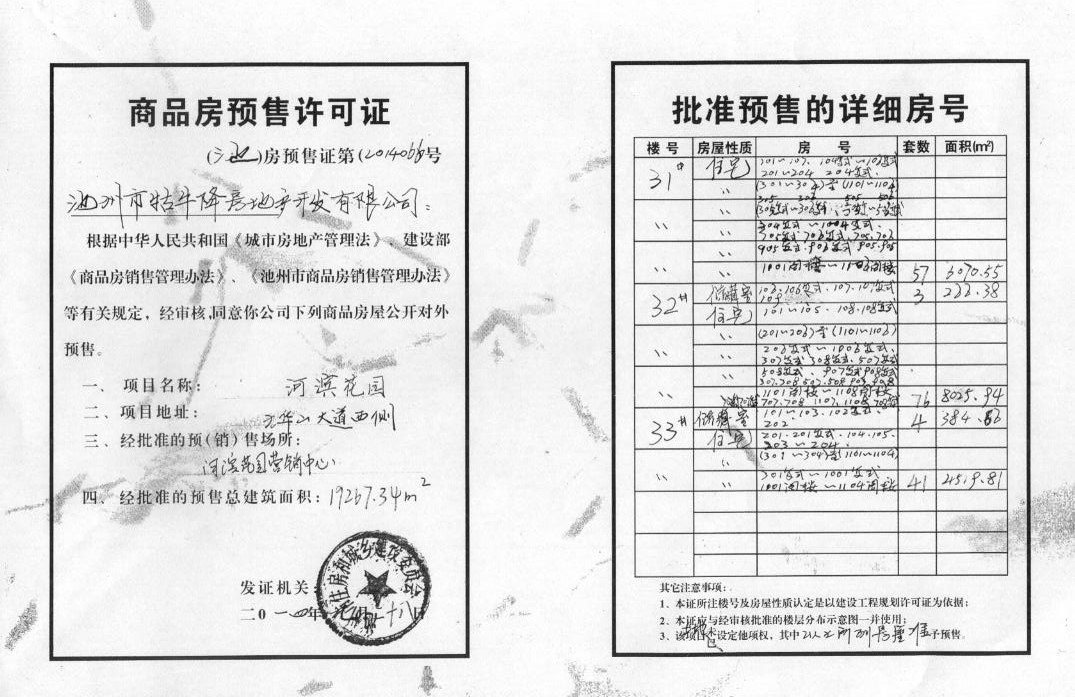 商品房预售许可证
(池)房预售证第(2014066号
池州市牯牛降房地产开发有限公司：
根据中华人民共和国《城市房地产管理法》、建设部
《商品房销售管理办法》、《池州市商品房销售管理办法》
等有关规定，经审核,同意你公司下列商品房屋公开对外
预售。
一、 项目名称： 河滨花园
二、项目地址： 九华山大道西侧
三、经批准的预(销)售场所：
河滨花园营销中心
四、经批准的预售总建筑面积：19267.34m²
发证机关
住房和城乡建设委员会
二0一四年 十八日
批准预售的详细房号
楼号 房屋性质 房 号 套数 面积(㎡)
31# 住宅
201~204 204复式
〃 (301~304)至(1101~1104)
〃
〃 304复式~1004复式
〃 1001阁楼~1103阁楼 57 6070.55
32# 储藏室 103.106复式.107.107复式 3 233.38
109
住宅 101~105.108.108复式
〃 (201~203)至(1101~1103)
〃 203复式~1003复式
307复式 308复式.507复式
〃 508复式.907复式908复式
307.308 507.508 907.908
〃 1101阁楼~1108阁楼 76 8025.94
33# 储藏室 101~103.102复式. 4 384.66
202
住宅 201.201复式.104.105.
203~204.
〃 (301~304)至(1101~1104)
〃 301复式~1001复式 41 4519.81
1101阁楼~1104阁楼
其它注意事项：
1、本证所注楼号及房屋性质认定是以建设工程规划许可证为依据；
2、本证应与经审核批准的楼层分布示意图一并使用；
3、该项目未设定他项权，其中以上所列房屋准予预售。